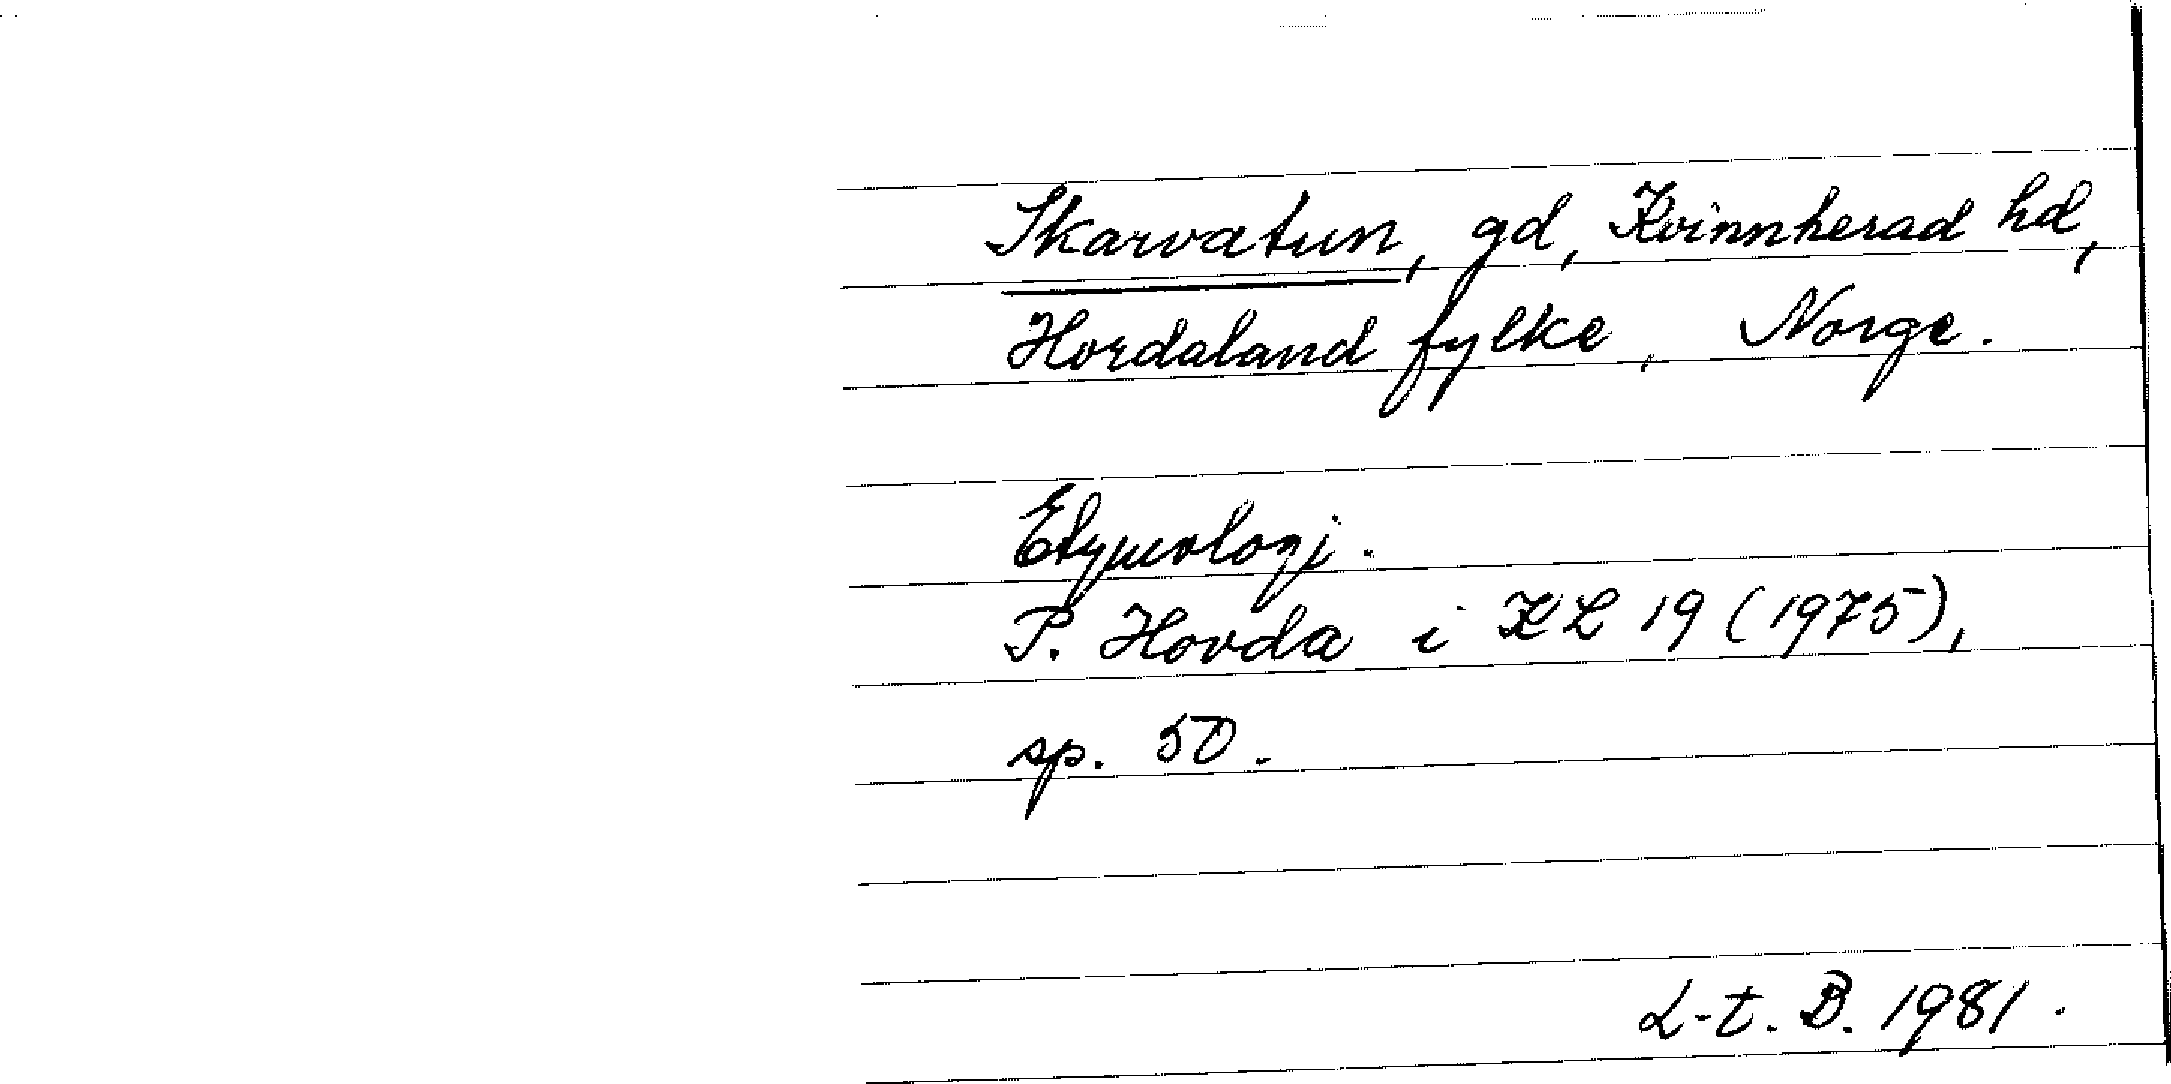 Skarvatun, gd, Kvinnherad hd,
Hordaland fylke, Norge.
Etymologi.
P. Hovda i KL 19 (1975),
sp. 50.
L-t. B. 1981.